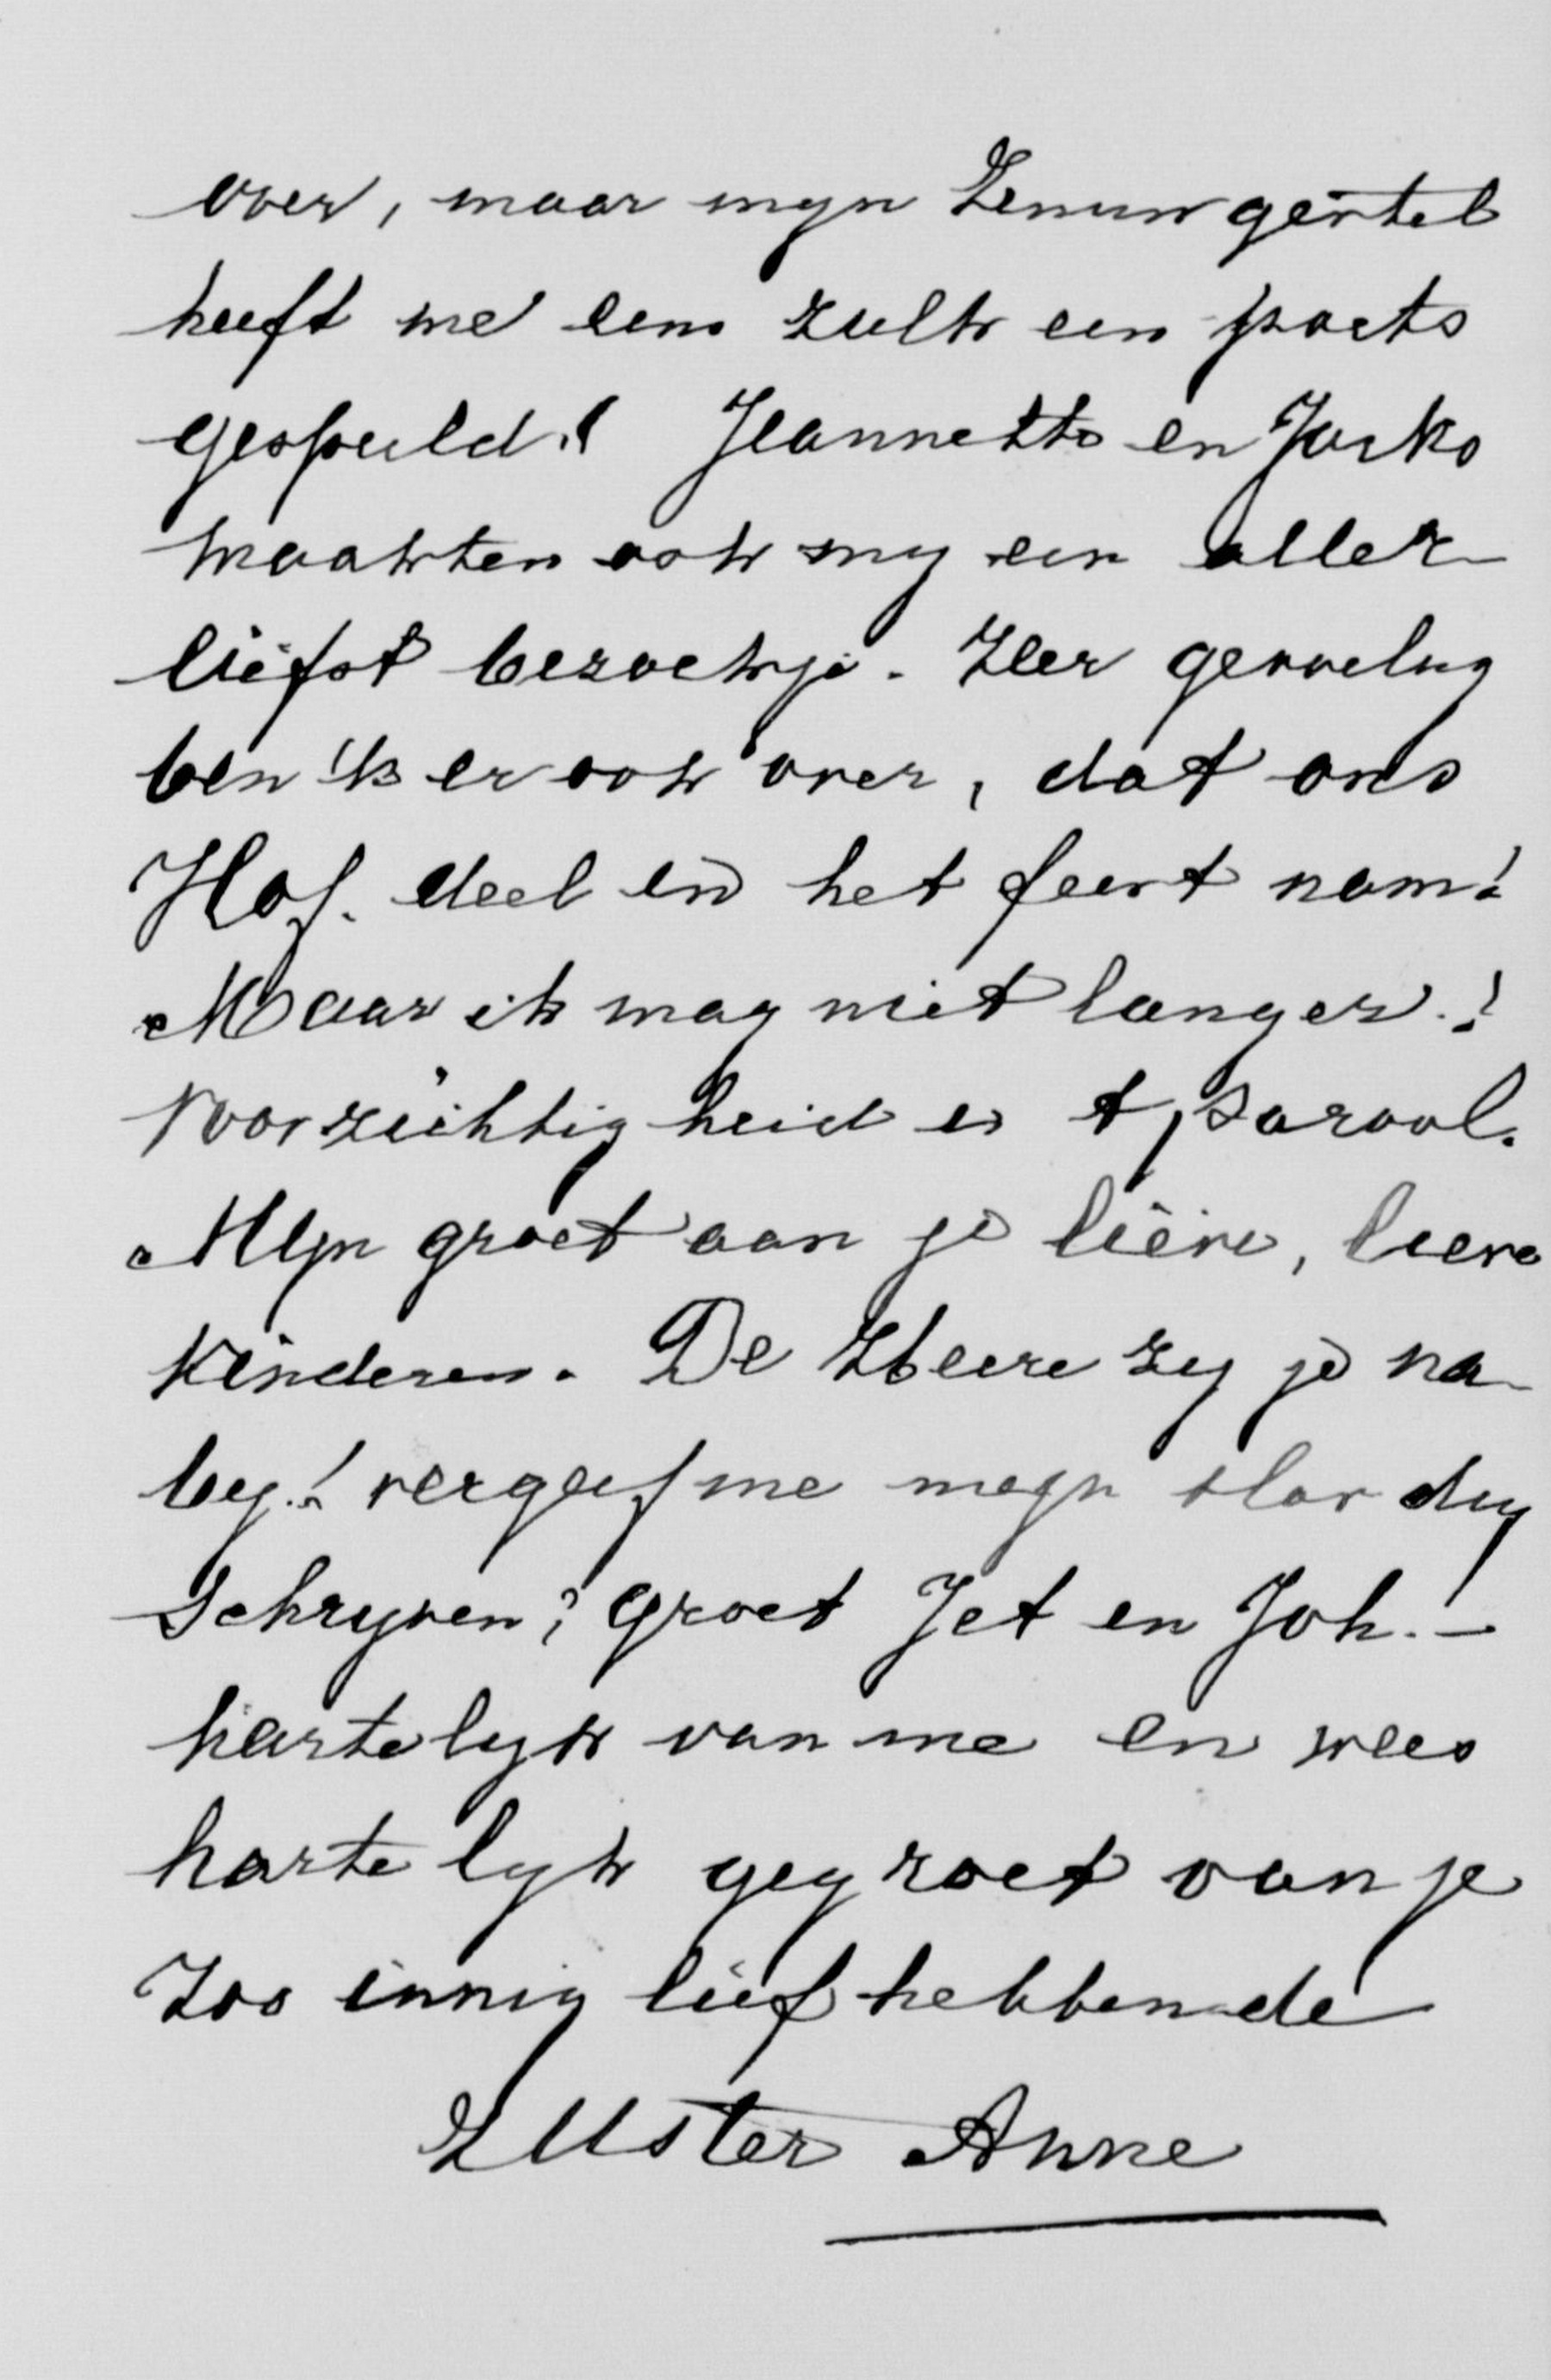 over, maar mijn Zenuwgestel
heeft me eens zulk een poets
gespeeld! Jeannette en Jacko
maakten ook mij een aller-
liefst bezoekje. Zeer gevoelig
ben ik er ook over, dat ons
Hof. deel in het feest nam!
Maar ik mag niet langer.!
Voorzichtigheid is 't parool.
Mijn groet aan je lieve, lieve
kinderen. De Heere zij je na-
bij! vergeef me mijn slordig
Schrijven; groet Jet en Joh. –
hartelijk van me en wees
hartelijk gegroet van je
Zoo innig liefhebbende
Zuster Anne